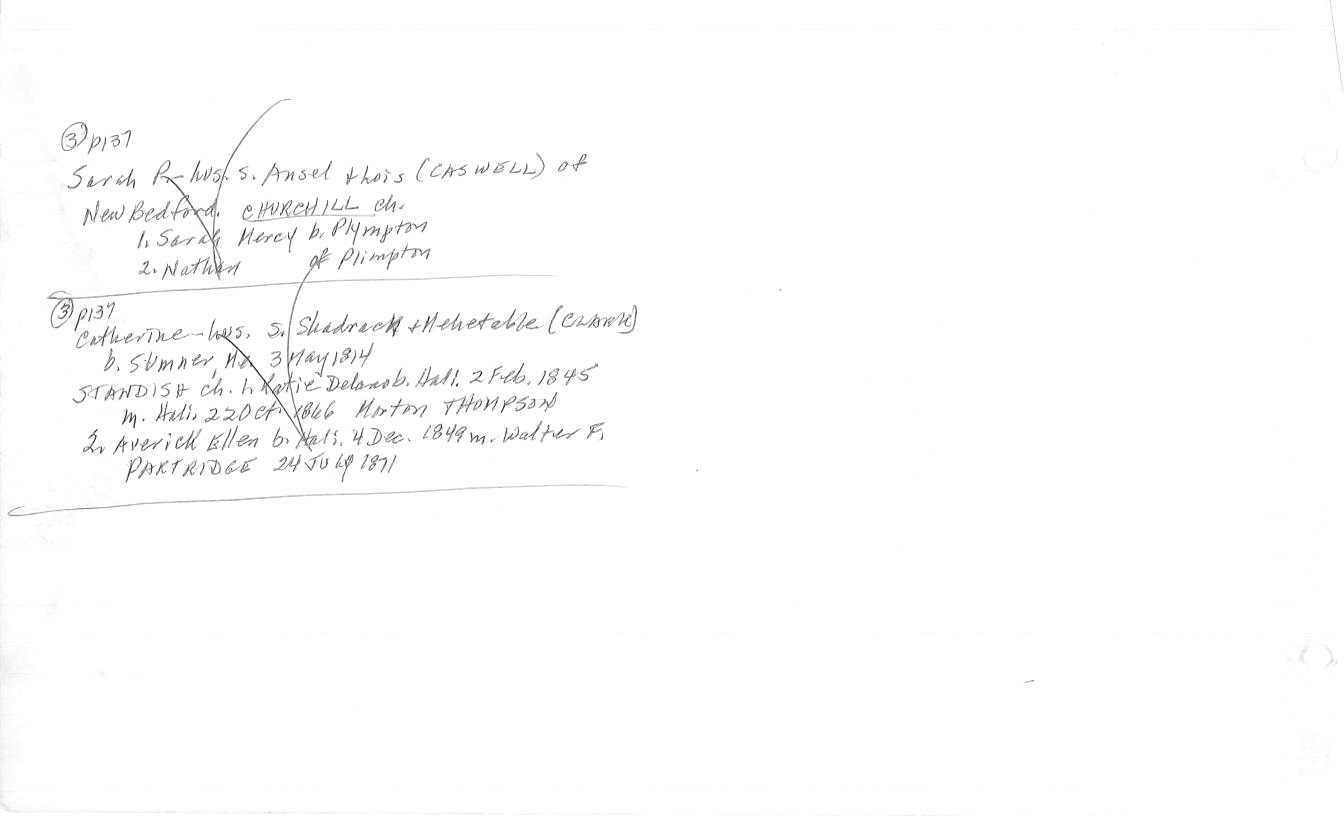 ③ p137
Sarah P- hus. s. Ansel + Lois (CASWELL) of
New Bedford. CHURCHILL ch.
1. Sarah Mercy b. Plympton
2. Nathan of Plimpton
③ p137
Catherine - hus. s. Shadrack + Mehetable (CLARK)
b. Sumner, Me. 3 May 1814
STANDISH ch. 1. Katie Delano b. Hali. 2 Feb. 1845
m. Hali. 22 Oct. 1866 Morton THOMPSON
2. Averick Ellen b. Hali. 4 Dec. 1849 m. Walter F.
PARTRIDGE 24 July 1871